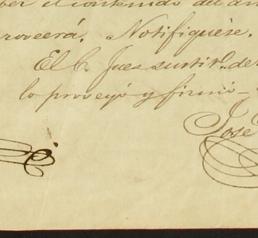 el contenido del
proveerá. Notifiquese.
El C. Juez sustito. de
lo proveyó y firmó-
José